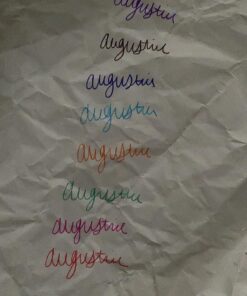 augustine
augustine
augustine
augustine
augustine
augustine
augustine
augustine